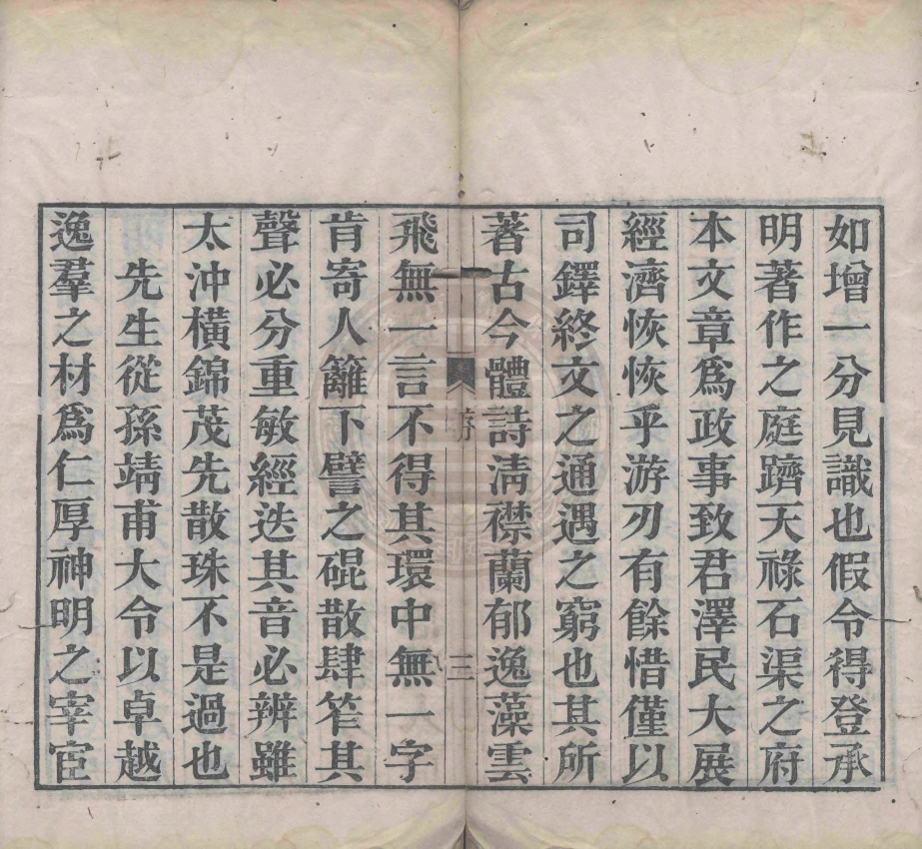 如增一分見識也假令得登承
明著作之庭躋天祿石渠之府
本文章爲政事致君澤民大展
經濟恢恢乎游刃有餘惜僅以
司鐸終文之通遇之窮也其所
著古今體詩清襟蘭郁逸藻雲
序
三
飛無一言不得其環中無一字
肯寄人籬下譬之硍散肆笮其
聲必分重敏經迭其音必辨雖
太沖橫錦茂先散珠不是過也
先生從孫靖甫大令以卓越
逸羣之材爲仁厚神明之宰宦